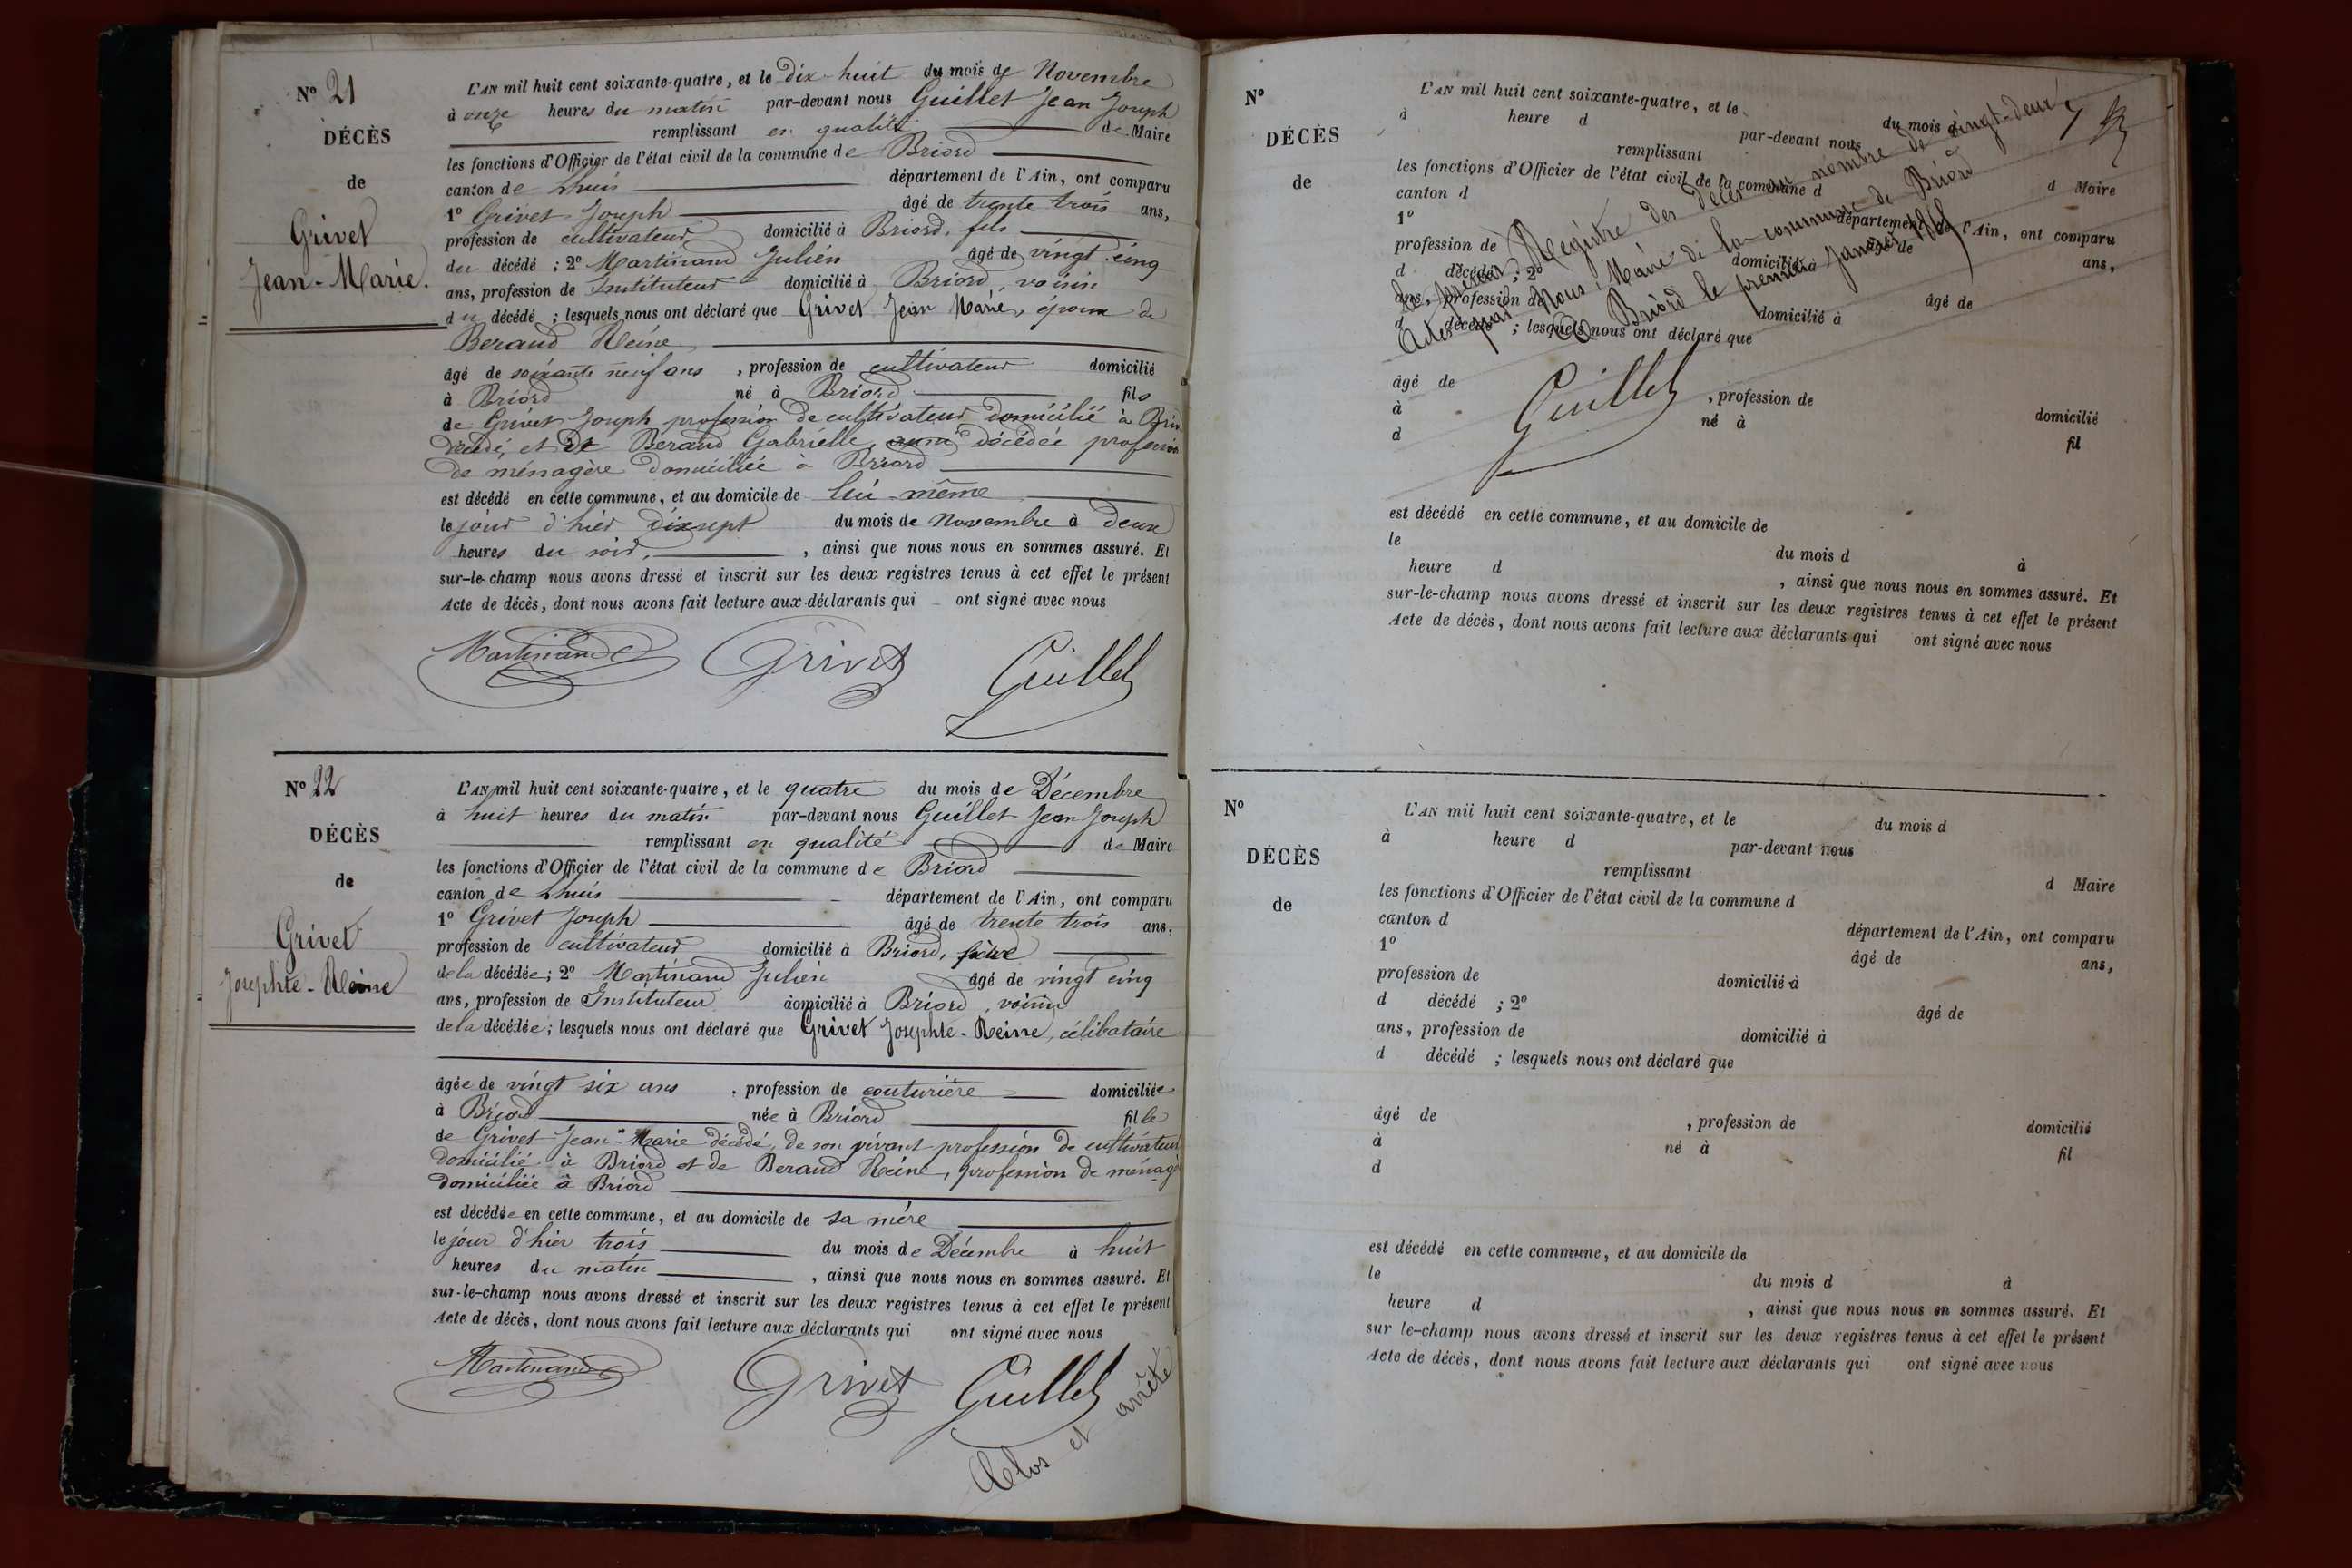 N° 21
DÉCÈS
de
Grivet
Jean-Marie.
L'AN mil huit cent soixante-quatre, et le dix-huit du mois de Novembre
à onze heures du matin par-devant nous Guillet Jean Joseph
remplissant en qualité de Maire
les fonctions d'Officier de l'état civil de la commune de Briord
canton de Lhuis département de l'Ain, ont comparu
1° Grivet Joseph âgé de trente trois ans,
profession de cultivateur domicilié à Briord, fils
du décédé ; 2° Martinand Julien âgé de vingt-cinq
ans, profession de Instituteur domicilié à Briord, voisin
du décédé ; lesquels nous ont déclaré que Grivet Jean Marie, époux de
Beraud Reine
âgé de soixante neuf ans , profession de cultivateur domicilié
à Briord né à Briord fils
de Grivet Joseph profession de cultivateur domicilié à Briord
décédé, et de Beraud Gabrielle, décédée profession
de ménagère domiciliée à Briord
est décédé en cette commune, et au domicile de lui-même
le jour d'hier dix sept du mois de Novembre à deux
heures du soir, , ainsi que nous nous en sommes assuré. Et
sur-le-champ nous avons dressé et inscrit sur les deux registres tenus à cet effet le présent
Acte de décès, dont nous avons fait lecture aux déclarants qui ont signé avec nous
Martinand Grivet Guillet
N° 22
DÉCÈS
de
Grivet
Josephte-Reine
L'AN mil huit cent soixante-quatre, et le quatre du mois de Décembre
à huit heures du matin par-devant nous Guillet Jean Joseph
remplissant en qualité de Maire
les fonctions d'Officier de l'état civil de la commune de Briord
canton de Lhuis département de l'Ain, ont comparu
1° Grivet Joseph âgé de trente trois ans,
profession de cultivateur domicilié à Briord, frère
de la décédée ; 2° Martinand Julien âgé de vingt cinq
ans, profession de Instituteur domicilié à Briord, voisin
de la décédée ; lesquels nous ont déclaré que Grivet Josephte-Reine, célibataire
âgée de vingt six ans , profession de couturière domiciliée
à Briord née à Briord fille
de Grivet Jean-Marie décédé, de son vivant profession de cultivateur
domicilié à Briord et de Beraud Reine, profession de ménag
domiciliée à Briord
est décédée en cette commune, et au domicile de sa mère
le jour d'hier trois du mois de Décembre à huit
heures du matin , ainsi que nous nous en sommes assuré. Et
sur-le-champ nous avons dressé et inscrit sur les deux registres tenus à cet effet le présent
Acte de décès, dont nous avons fait lecture aux déclarants qui ont signé avec nous
Martinand Grivet Guillet
Clos et arrêté
N°
DÉCÈS
de
L'AN mil huit cent soixante-quatre, et le du mois d
à heure d par-devant nous
remplissant d Maire
les fonctions d'Officier de l'état civil de la commune d
canton d département de l'Ain, ont comparu
1° âgé de ans,
profession de domicilié à
d décédé ; 2° âgé de
ans, profession de domicilié à
d décédé ; lesquels nous ont déclaré que
le présent Registre des décès au nombre de vingt-deux
Actes par Nous, Maire de la commune de Briord
à Briord le premier Janvier 1865
Guillet
âgé de , profession de domicilié
à né à fil
d
est décédé en cette commune, et au domicile de
le du mois d à
heure d , ainsi que nous nous en sommes assuré. Et
sur-le-champ nous avons dressé et inscrit sur les deux registres tenus à cet effet le présent
Acte de décès, dont nous avons fait lecture aux déclarants qui ont signé avec nous
N°
DÉCÈS
de
L'AN mil huit cent soixante-quatre, et le du mois d
à heure d par-devant nous
remplissant d Maire
les fonctions d'Officier de l'état civil de la commune d
canton d département de l'Ain, ont comparu
1° âgé de ans,
profession de domicilié à
d décédé ; 2° âgé de
ans, profession de domicilié à
d décédé ; lesquels nous ont déclaré que
âgé de , profession de domicilié
à né à fil
d
est décédé en cette commune, et au domicile de
le du mois d à
heure d , ainsi que nous nous en sommes assuré. Et
sur le-champ nous avons dressé et inscrit sur les deux registres tenus à cet effet le présent
Acte de décès, dont nous avons fait lecture aux déclarants qui ont signé avec nous